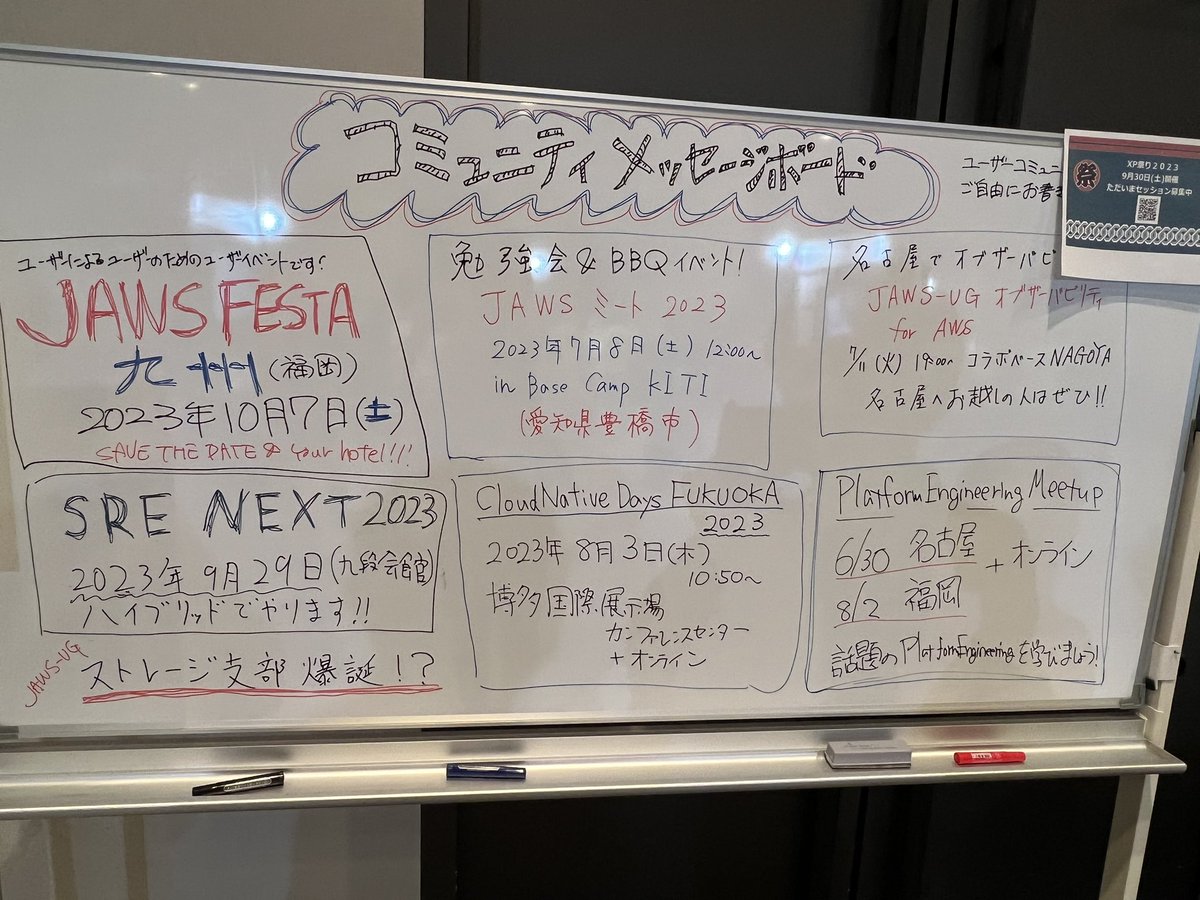 コミュニティメッセージボード
ユーザーコミュニ
ご自由にお書き
祭
XP祭り2023
9月30日(土)開催
ただいまセッション募集中
ユーザによるユーザのためのユーザイベントです!
JAWS FESTA
九州(福岡)
2023年10月7日(土)
SAVE THE DATE & your hotel!!!
勉強会 & BBQイベント!
JAWS ミート 2023
2023年7月8日(土) 12:00~
in Base Camp KITI
(愛知県豊橋市)
名古屋で オブザーバビ
JAWS-UG オブザーバビリティ
for AWS
7/11(火) 19:00~ コラボベースNAGOYA
名古屋へお越しの人はぜひ!!
SRE NEXT 2023
2023年9月29日(九段会館)
ハイブリッドでやります!!
JAWS-UG
ストレージ支部 爆誕!?
CloudNative Days FUKUOKA
2023
2023年8月3日(木)
10:50~
博多国際展示場
カンファレンスセンター
+ オンライン
Platform Engineering Meetup
6/30 名古屋
+ オンライン
8/2 福岡
話題のPlatformEngineeringを学びましょう!